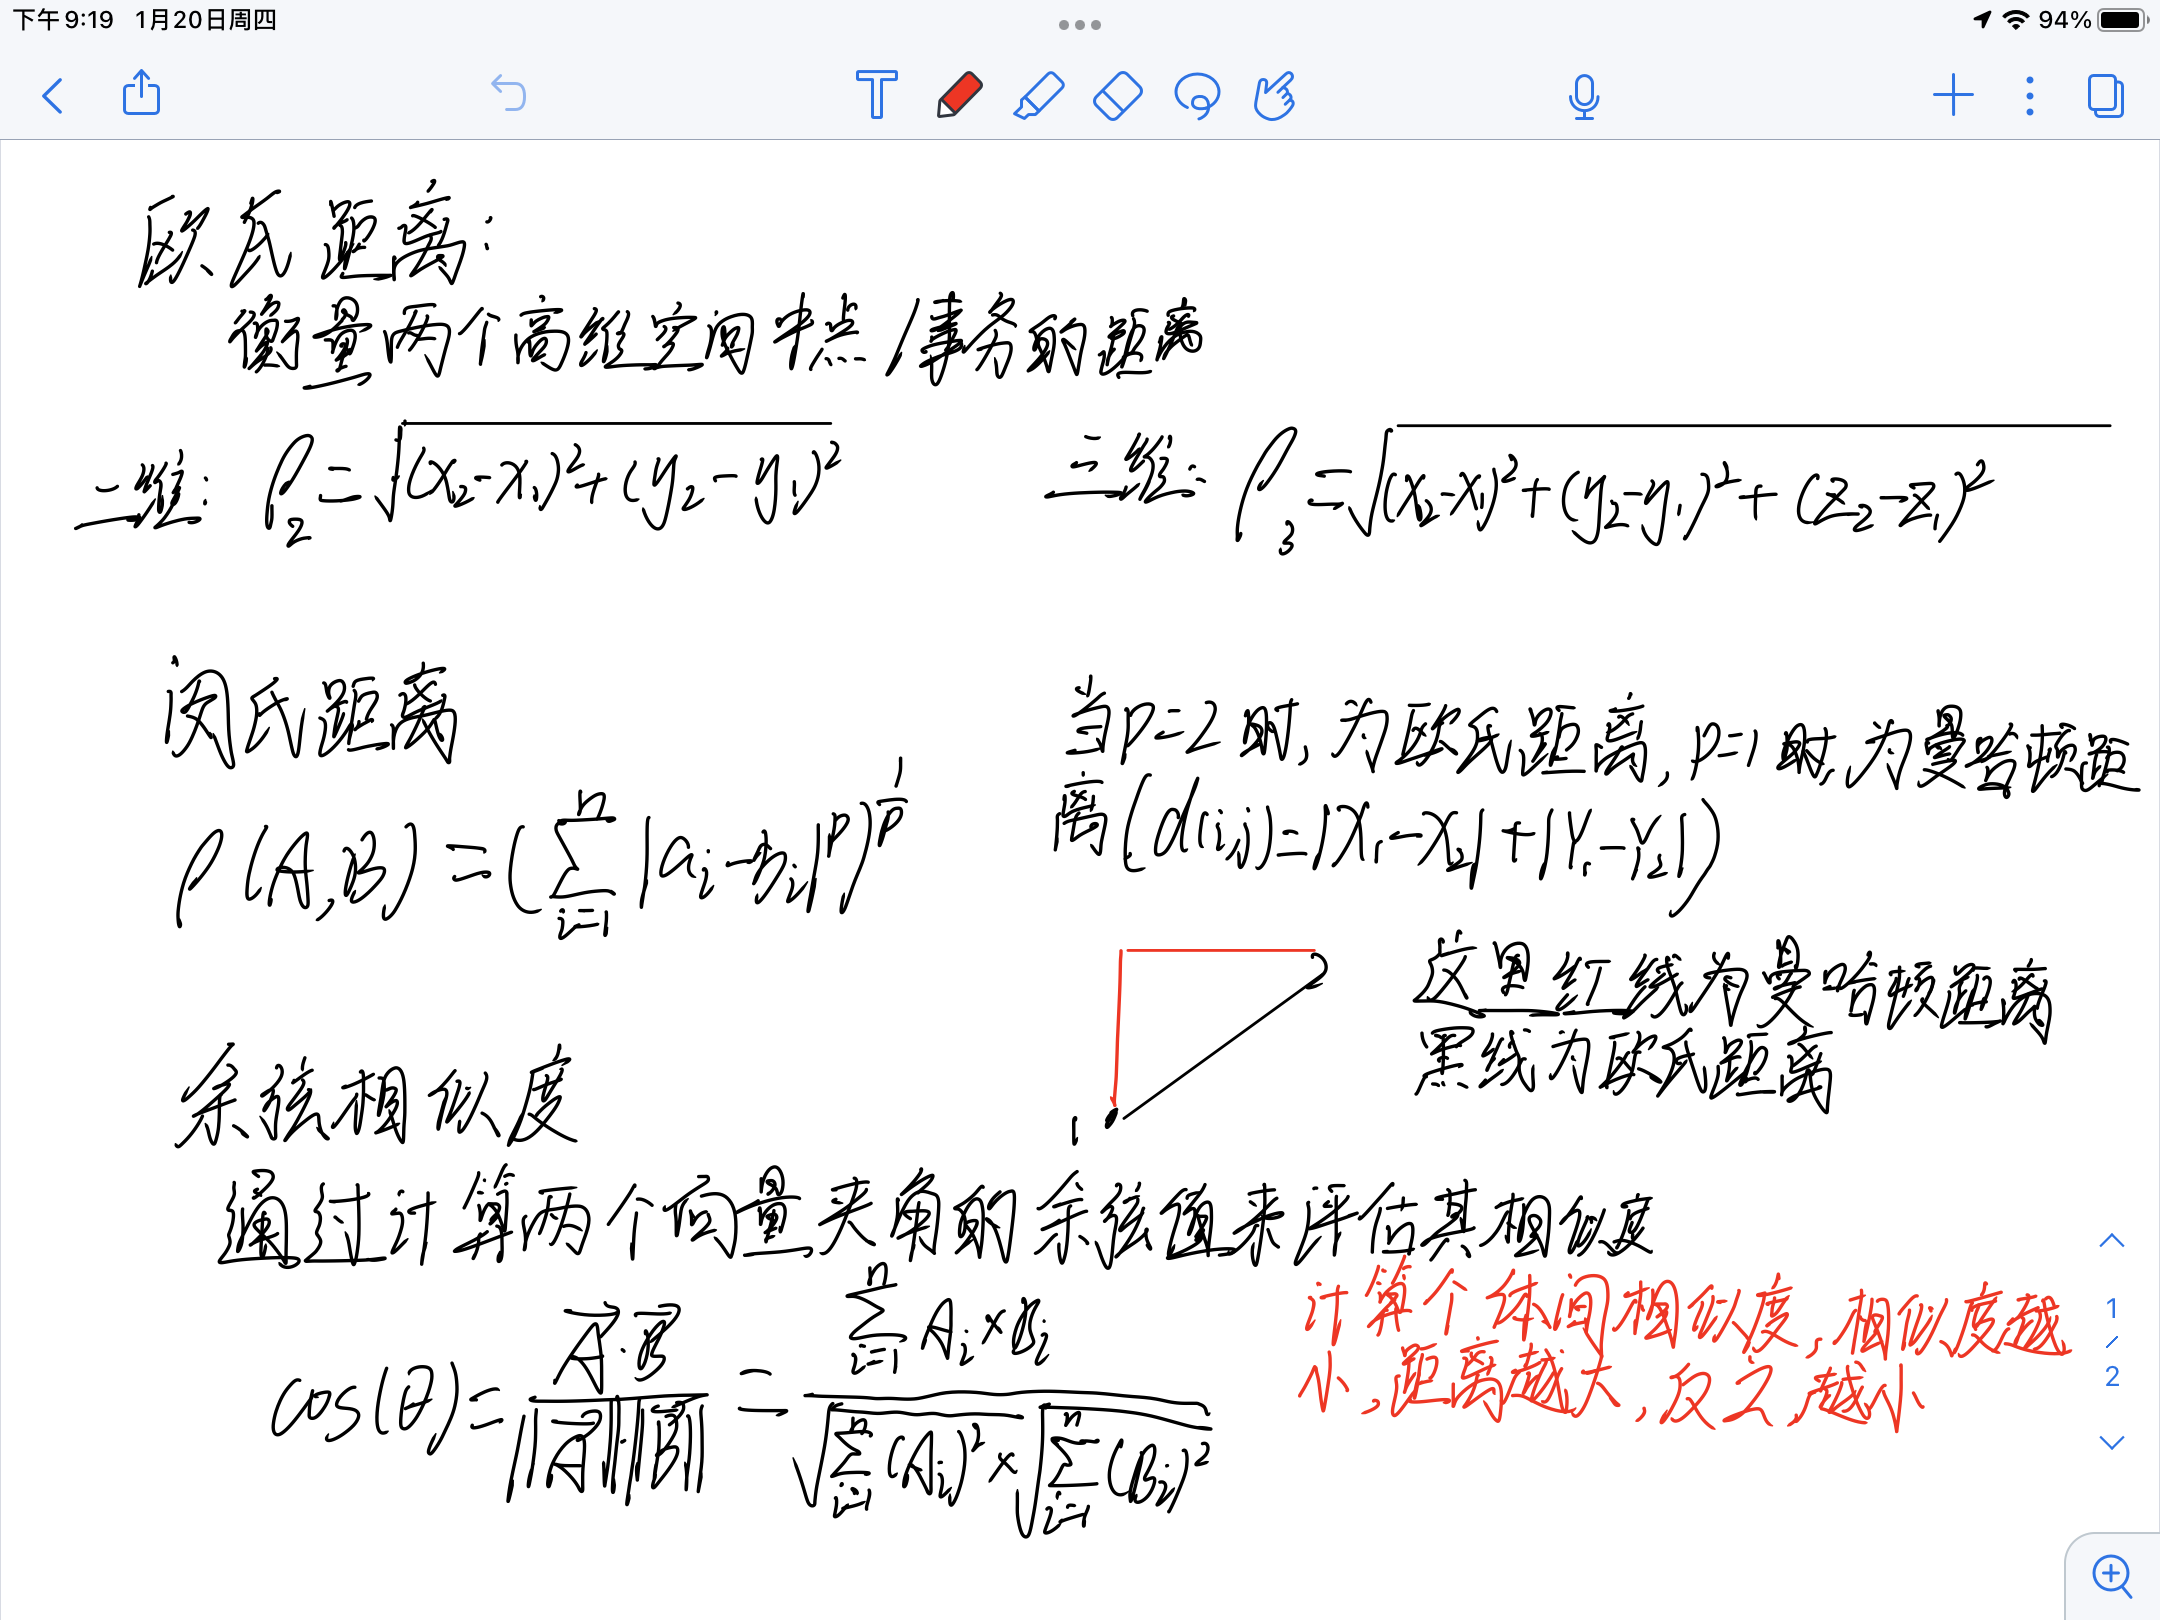 下午9:19 1月20日周四
94%
T
欧氏距离:
衡量两个高维空间中点/事务的距离
二维: ρ₂=√((x₂-x₁)²+(y₂-y₁)²)
三维: ρ₃=√((x₂-x₁)²+(y₂-y₁)²+(z₂-z₁)²)
闵氏距离
ρ(A,B)=(∑ⁿᵢ₌₁|aᵢ-bᵢ|ᵖ)^(1/p)
当p=2时,为欧氏距离,p=1时,为曼哈顿距
离(d(i,j)=|X₁-X₂|+|Y₁-Y₂|)
2
1
这里红线为曼哈顿距离
黑线为欧氏距离
余弦相似度
通过计算两个向量夹角的余弦值来评估其相似度
cos(θ)=(A⃗·B⃗)/(||A⃗||·||B⃗||)=(∑ⁿᵢ₌₁Aᵢ×Bᵢ)/(√(∑ⁿᵢ₌₁(Aᵢ)²)×√(∑ⁿᵢ₌₁(Bᵢ)²))
计算个体间相似度,相似度越
小,距离越大,反之,越小
1/2